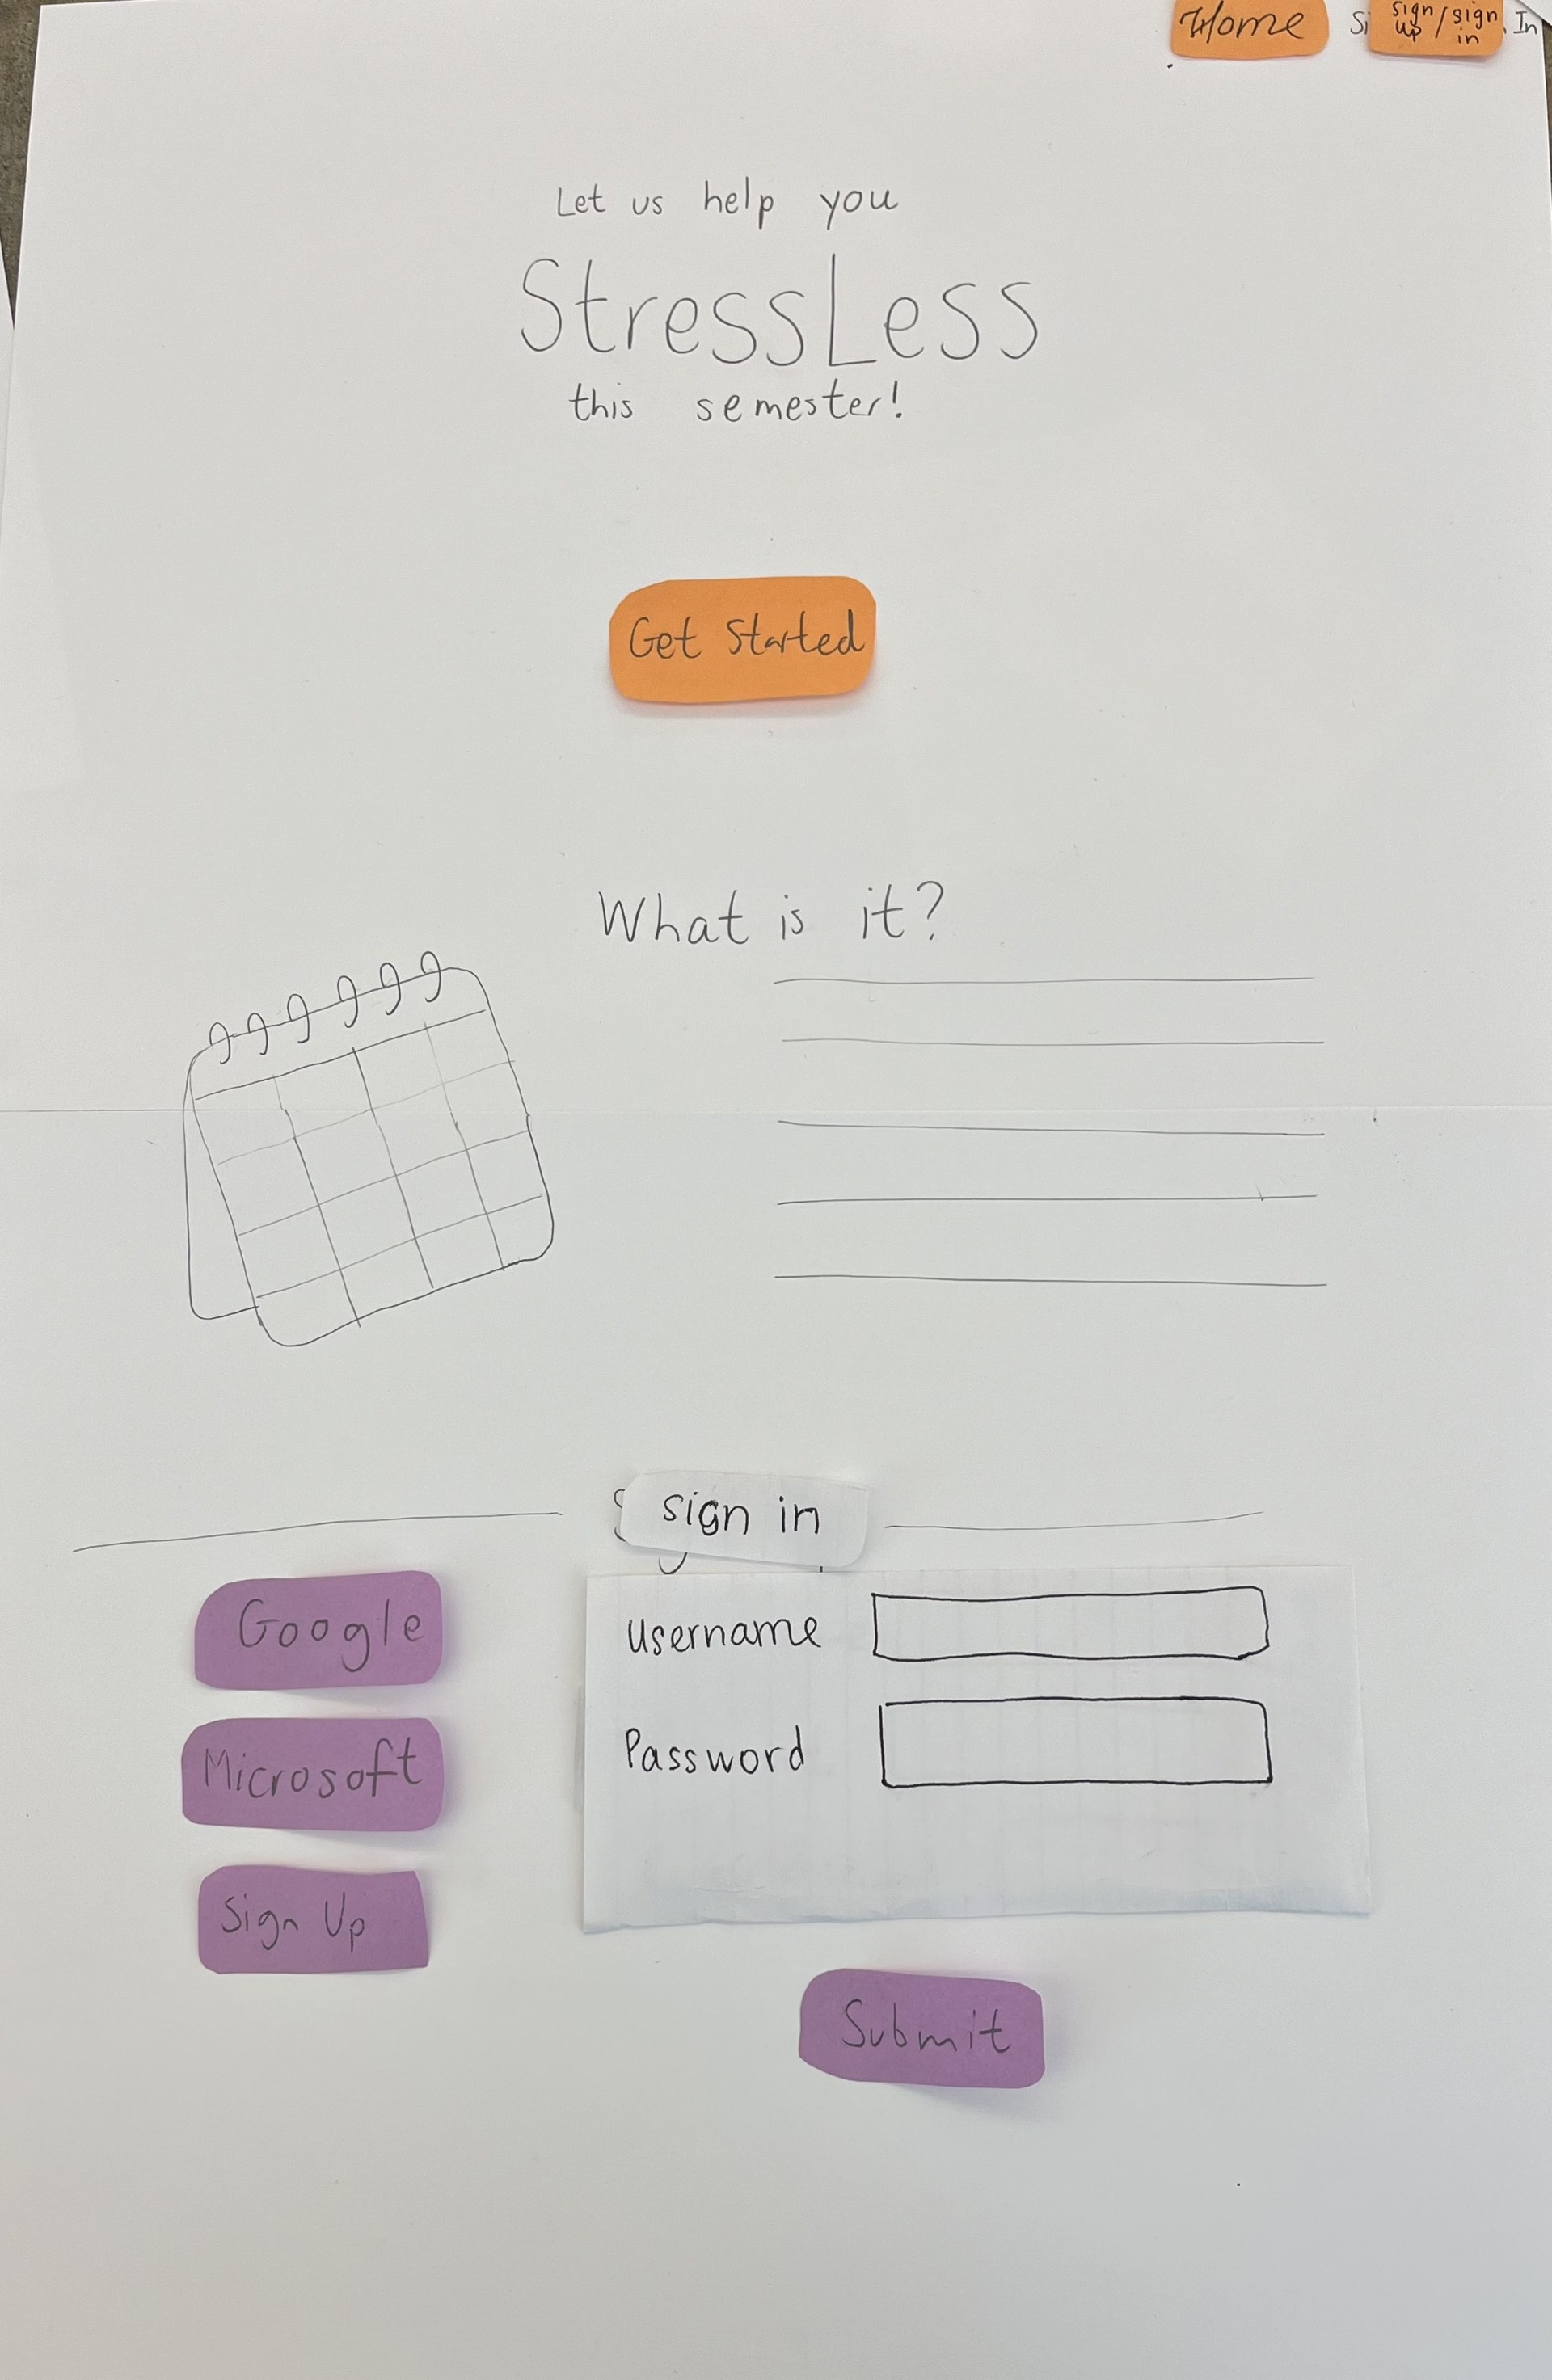 Home
Si
sign up / sign in
In
Let us help you
StressLess
this semester!
Get Started
What is it?
sign in
Google
Microsoft
Sign Up
Username
Password
Submit